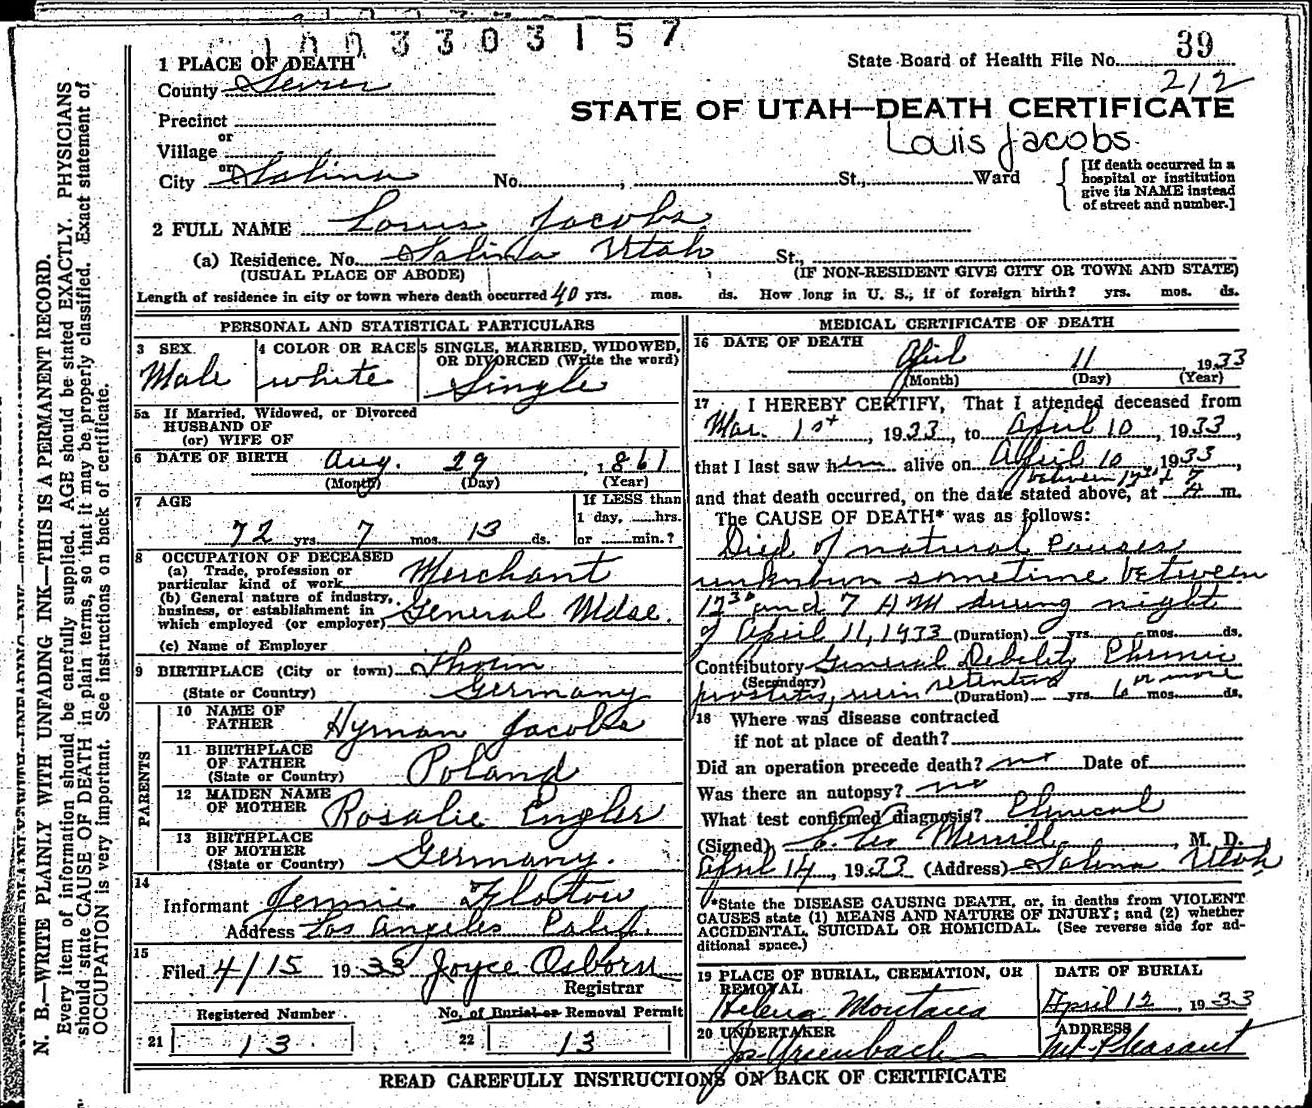 1003303157
39
State Board of Health File No.
212
1 PLACE OF DEATH
County Sevier
STATE OF UTAH—DEATH CERTIFICATE
Precinct
Louis Jacobs
or
Village
or
City Salina No. , St., Ward
[If death occurred in a
hospital or institution
give its NAME instead
of street and number.]
2 FULL NAME Louis Jacobs
(a) Residence. No. Salina Utah St.,
(USUAL PLACE OF ABODE) (IF NON-RESIDENT GIVE CITY OR TOWN AND STATE)
Length of residence in city or town where death occurred 40 yrs. mos. ds. How long in U. S., if of foreign birth? yrs. mos. ds.
N. B.—WRITE PLAINLY WITH UNFADING INK—THIS IS A PERMANENT RECORD.
Every item of information should be carefully supplied. AGE should be stated EXACTLY. PHYSICIANS
should state CAUSE OF DEATH in plain terms, so that it may be properly classified. Exact statement of
OCCUPATION is very important. See instructions on back of certificate.
PERSONAL AND STATISTICAL PARTICULARS
3 SEX
Male
4 COLOR OR RACE
white
5 SINGLE, MARRIED, WIDOWED,
OR DIVORCED (Write the word)
Single
5a If Married, Widowed, or Divorced
HUSBAND OF
(or) WIFE OF
6 DATE OF BIRTH Aug. 29, 1861
(Month) (Day) (Year)
7 AGE
72 yrs. 7 mos. 13 ds.
If LESS than
1 day, hrs.
or min.?
8 OCCUPATION OF DECEASED
(a) Trade, profession or
particular kind of work Merchant
(b) General nature of industry,
business, or establishment in
which employed (or employer) General Mdse.
(c) Name of Employer
9 BIRTHPLACE (City or town) Thorn
(State or Country) Germany
PARENTS
10 NAME OF
FATHER Hyman Jacobs
11 BIRTHPLACE
OF FATHER
(State or Country) Poland
12 MAIDEN NAME
OF MOTHER Rosalie Engler
13 BIRTHPLACE
OF MOTHER
(State or Country) Germany.
14
Informant Jennie Flatow
Address Los Angeles Calif.
15
Filed 4/15 1933 Joyce Osborn
Registrar
Registered Number
21 13
No. of Burial or Removal Permit
22 13
MEDICAL CERTIFICATE OF DEATH
16 DATE OF DEATH
April 11 1933
(Month) (Day) (Year)
17 I HEREBY CERTIFY, That I attended deceased from
Mar. 1st, 1933, to April 10, 1933,
that I last saw him alive on April 10 1933,
between 12³⁰ + 7
and that death occurred, on the date stated above, at A m.
The CAUSE OF DEATH* was as follows:
Died of natural causes
unknown sometime between
12³⁰ and 7 AM during night
of April 11, 1933 (Duration) yrs. mos. ds.
Contributory General Debility Chronic
(Secondary)
prostitis, urin retention (Duration) yrs. 6 or more mos. ds.
18 Where was disease contracted
if not at place of death?
Did an operation precede death? no Date of
Was there an autopsy? no
What test confirmed diagnosis? Clinical
(Signed) Merrill, M. D.
April 14, 1933 (Address) Salina Utah
*State the DISEASE CAUSING DEATH, or, in deaths from VIOLENT
CAUSES state (1) MEANS AND NATURE OF INJURY; and (2) whether
ACCIDENTAL, SUICIDAL OR HOMICIDAL. (See reverse side for ad-
ditional space.)
19 PLACE OF BURIAL, CREMATION, OR
REMOVAL
Helena Montana
DATE OF BURIAL
April 12, 1933
20 UNDERTAKER
Greenbach
ADDRESS
Mt. Pleasant
READ CAREFULLY INSTRUCTIONS ON BACK OF CERTIFICATE